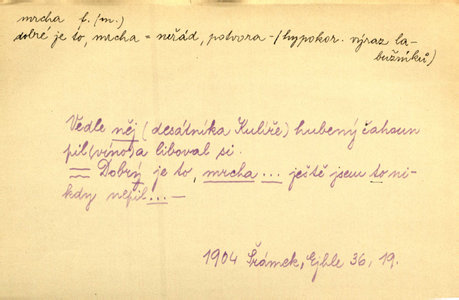 mrcha f. (m.)
dobré je to, mrcha = neřád, potvora - (hypokor. výraz la-
bužníků)
Vedle něj (desátníka Kulíře) hubený čahoun
pil (víno) a liboval si.
= Dobrý je to, mrcha ... ještě jsem to ni-
kdy nepil ... —
1904 Šrámek, Ejhle 36, 19.